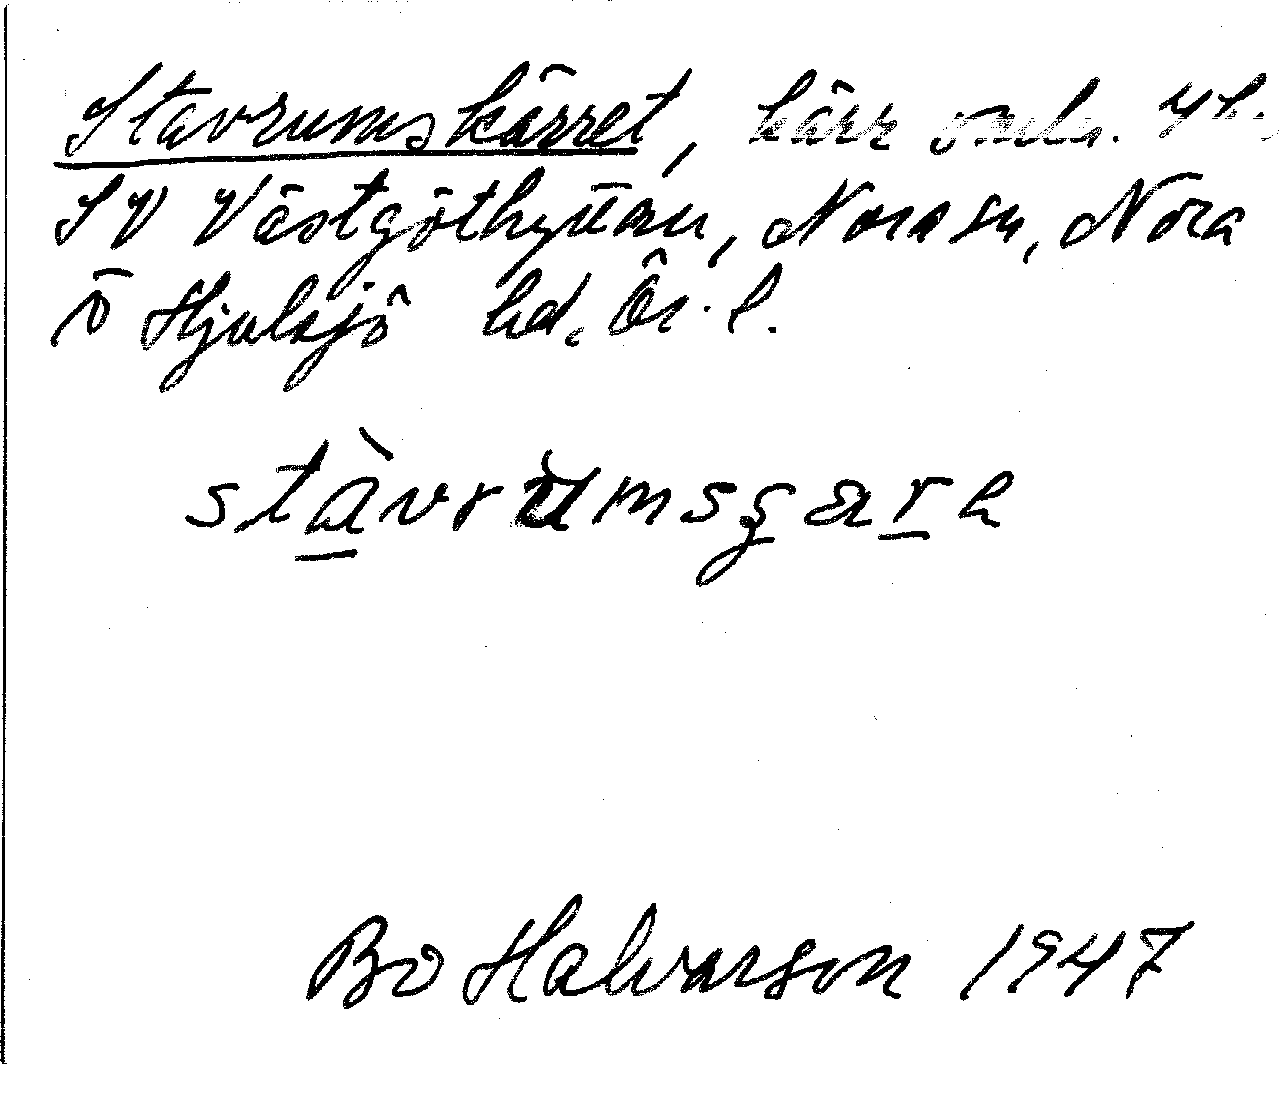 Stavrumskärret, kärr omkr. 4 h.
SV Västgöthyttan, Nora sn, Nora
o Hjulsjö hd, Ör. l.
stàvrumsçæra
Bo Halvarson 1947